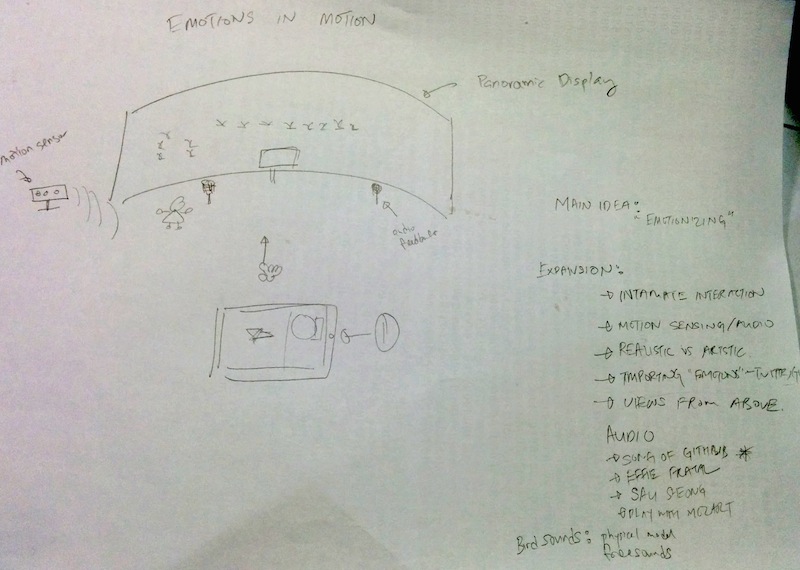 EMOTIONS IN MOTION
Panoramic Display
motion sensor
audio
MAIN IDEA:
"EMOTION'ZING"
EXPANSION:
→ INTAMATE INTERACTION
→ MOTION SENSING/AUDIO
→ REALISTIC VS ARTISTIC.
→ IMPORTING "EMOTIONS"
→ VIEWS FROM ABOVE.
AUDIO
→ SONG OF GITHUB *
→
→
PLAY WITH MOZART
Bird sounds: physical model
freesounds